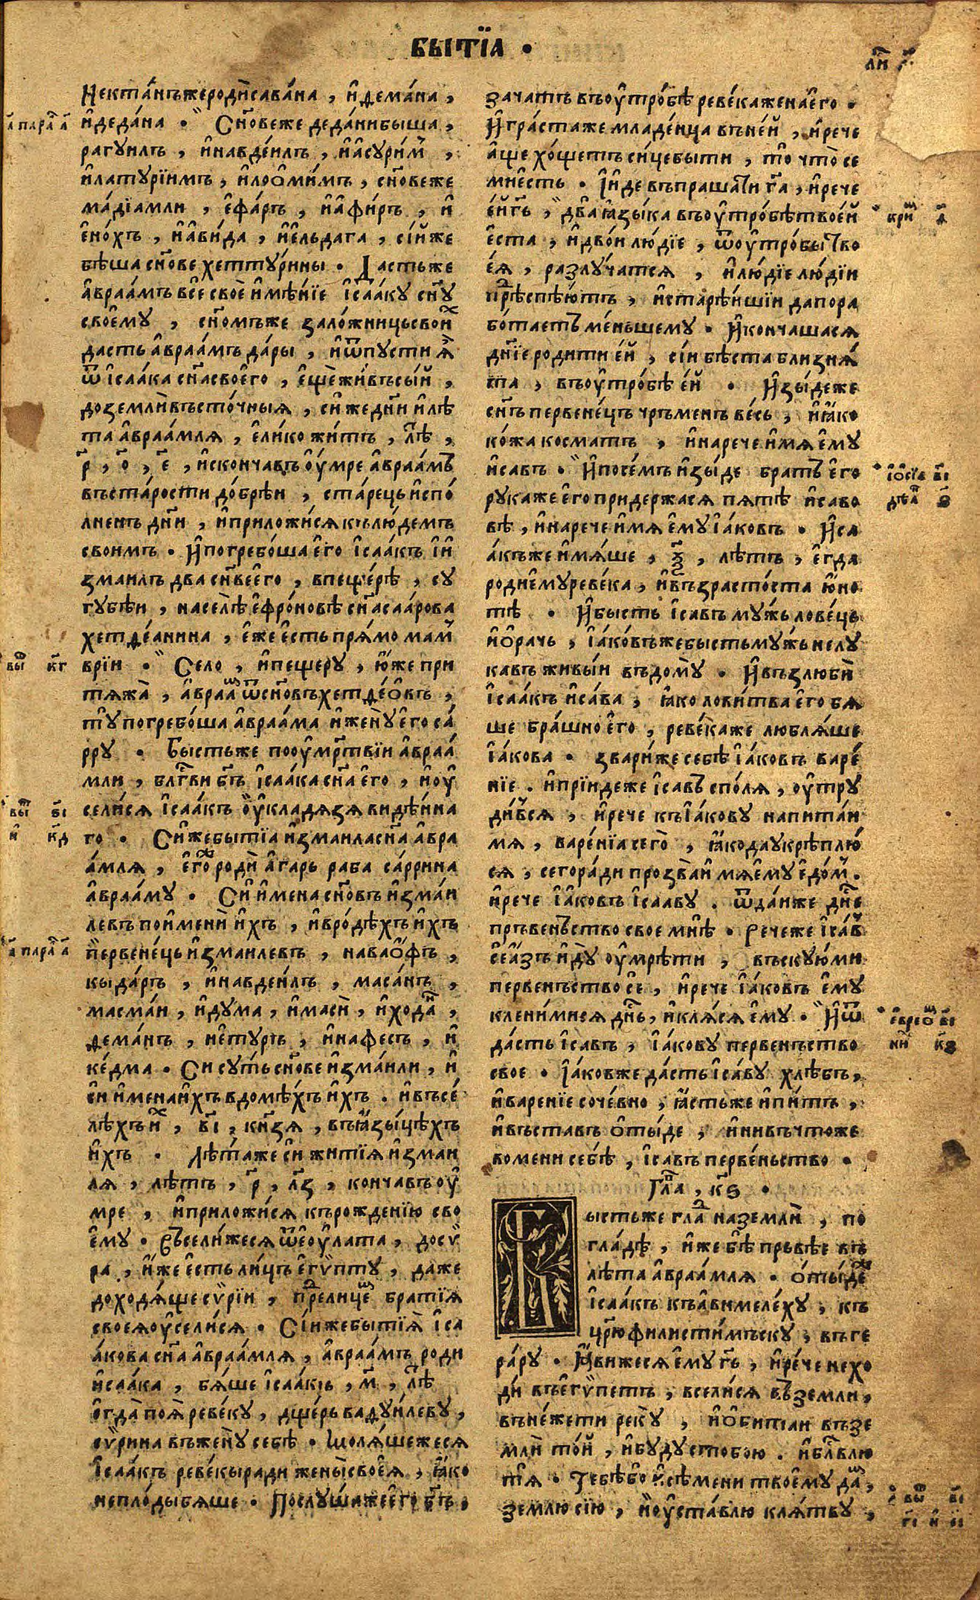 БЫТЇА ·
Нектанъжеродисавана , идемана ,
идедана · Сн҃овеже деданибыша ,
рагуилъ , инавдеилъ , иасурим ,
илатурїимъ , илооми́мъ , сн҃овеже
мадїамли , ефаръ , иафиръ , и
енохъ , иавида , иельдага , сїиже
бѣша сн҃ове хеттурины · Дастьже
авраамъ все свое имѣнїе ісааку сн҃у
своему , сн҃омъже заложницьсвои
дасть авраамъ дары , иѿпусти я
ѿ ісаака сн҃асвоего , ещеживъсыи ,
доземлѧвъсточныя , сиже дн҃и илѣ
та авраамля , елико житъ , лѣ ,
р҃ , о҃ , е҃ , искончавъ оумре авраамъ
въстарости добрѣи , старець испо
лненъ дн҃и , иприложися кълюдемъ
своимъ · Ипогребоша его ісаакъ іи
змаилъ два сн҃ѣего , впещерѣ , су
губѣи , населѣ ефроновѣ сн҃асаарова
хетдеанина , еже есть прямо мам
врїи · Село , ипещеру , юже при
тяжа , авраа ѿсн҃овъхетдеовъ ,
ту погребоша авраама ижену его са
рру · Бысть же пооумртвїи авраа
мли , блгви бг҃ъ ісаака сн҃а его , иоу
селися ісаакъ оукладязя видѣнна
го · Сижебытїа измаиласн҃а авра
амля , его роди агарь раба саррина
аврааму · Си имена сн҃овъ измаи
левъ поимени ихъ , ивродѣхъ ихъ
первенець измаилевъ , наваофъ ,
кыдаръ , инавдеилъ , масанъ ,
масман , идума , имаси , иходд ,
деманъ , иетуръ , инафесъ , и
кедма · Си суть сн҃ове измаили , и
си имена ихъ вдомѣхъ ихъ . ивъсе
лѣхъ и , в҃і , кн҃зя , въязыцѣхъ
ихъ · Лѣта же си житїя измаи
ля , лѣтъ , р҃ , л҃з , кончавъ оу
мре , иприложися кърожденїю сво
ему · Въселижеся ѿеоулата , досу
ра , иже есть лицъ египту , даже
доходяще сѵрїи , прелице братїя
своеяоуселися · Сїижебытїя іса
акова сн҃а авраамля , авраамъ роди
исаака , бяше ісаакъ , м҃ , лѣ
егда поя ревеку , дщерь вадуилеву ,
сурина въжену себе · Моляшежеся
ісаакъ ревекыради женысвоея , яко
неплоды бяше · Послуша же его бг҃ъ ·
зачатъ въоутробѣ ревекаженаего ·
Играста же младенца въ ней , ирече
аще хощетъ сицебыти , то что се
миѣсть · Ииде въпрашати г҃а , ирече
ей г҃ь , два языка въоутробѣтвоей
еста , идвои людїе , ѿоутробы тво
ея , разлучатся , илюдїе людїи
преспѣютъ , истарѣишїи да пора
ботаетъ меньшему · Икончашася
дн҃їе родити ей , сїи бѣста близня
та , въоутробѣ ей · Изыдеже
сн҃ъ первенецъ чръменъ весь , и яко
кожа косматъ , инарече имя ему
исавъ · Ипосемъ изыде братъ его
рука же его придержася пятѣ исаво
вѣ , инарече имя ему іаковъ · Иса
акъже имяше , ѯ҃ , лѣтъ , егда
родиемуревека , ивъзрастоста юно
тѣ · Ибысть ісавъ мужь ловець
иорачь , іаковъжебыстьмужь нелу
кавъ живыи въдому · Ивъзлюби
ісаакъ исава , яко ловитва его бя
ше брашно его , ревекаже любляше
іакова · зварижесебѣ іаковъ варе
нїе . ипрїидеже ісавъ споля , оутру
дився , ирече къіакову напитаи
мя , варенїасего , якодаукрѣплю
ся , сегоради прозван имяему едом .
ирече іаковъ ісааву . ѿдаиже дн҃е
пръвеньство свое мнѣ · Рече же ісав
се азъ иду оумрети , въскую ми
первенъство се , ирече іаковъ ему
кленимися дн҃ь , икляся ему · Иѿ
дасть ісавъ , іакову первеньство
свое · Іаковже дасть ісаву хлѣбъ ,
иваренїе сочевно , ястьже ипитъ ,
ивъставъ отыде , инивъчтоже
вомени себѣ , ісавъ первеньство ·
Гла , к҃ѕ ·
Бысть же гла наземли , по
гладѣ , иже бѣ прьвѣе въ
лѣта авраамля · отыде
ісаакъ къавимелеху , къ
цр҃ю филистимьску , въге
рару · Ивижеся ему г҃ь , ирече нехо
ди въегипетъ , вселися въземли ,
въню жети реку , иобитаи въ зе
мли тои , ибуду стобою . иблг҃влю
тѧ · Тебѣбо исѣмени твоему дам
землю сїю , иоуставлю клятву ,